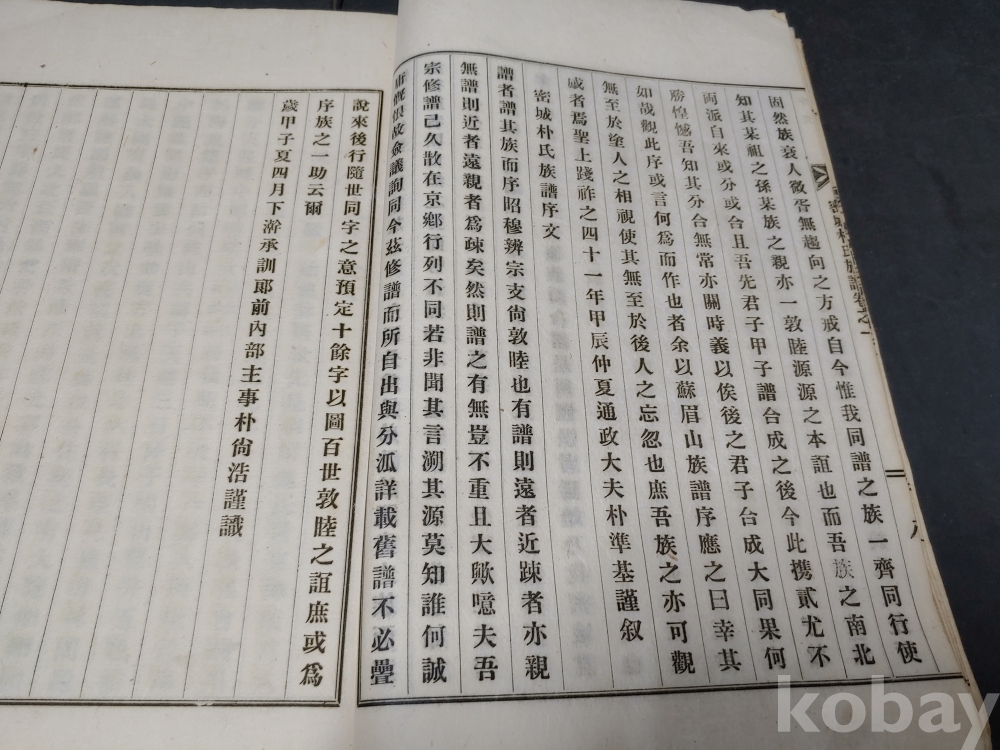 密城朴氏族譜卷之一
九
固然族衰人微胥無趨向之方戒自今惟我同譜之族一齊同行使
知其某祖之孫某族之親亦一敦睦源源之本誼也而吾族之南北
兩派自來或分或台且吾先君子甲子譜台成之後今此携貳尤不
勝惶憾吾知其分台無常亦關時義以俟後之君子台成大同果何
如哉觀此序或言何爲而作也者余以蘇眉山族譜序應之曰幸其
無至於塗人之相視使其無至於後人之忘忽也庶吾族之亦可觀
感者焉聖上踐祚之四十一年甲辰仲夏通政大夫朴準基謹叙
密城朴氏族譜序文
譜者譜其族而序昭穆辨宗支尙敦睦也有譜則遠者近踈者亦親
無譜則近者遠親者爲踈矣然則譜之有無豈不重且大歟噫夫吾
宗修譜己久散在京鄉行列不同若非聞其言溯其源莫知誰何誠
庸慨恨故僉議詢同今玆修譜而所自出與分派詳載舊譜不必疊
說來後行隨世同字之意預定十餘字以圖百世敦睦之誼庶或爲
序族之一助云爾
歲甲子夏四月下澣承訓郞前內部主事朴尙浩謹識
kobay